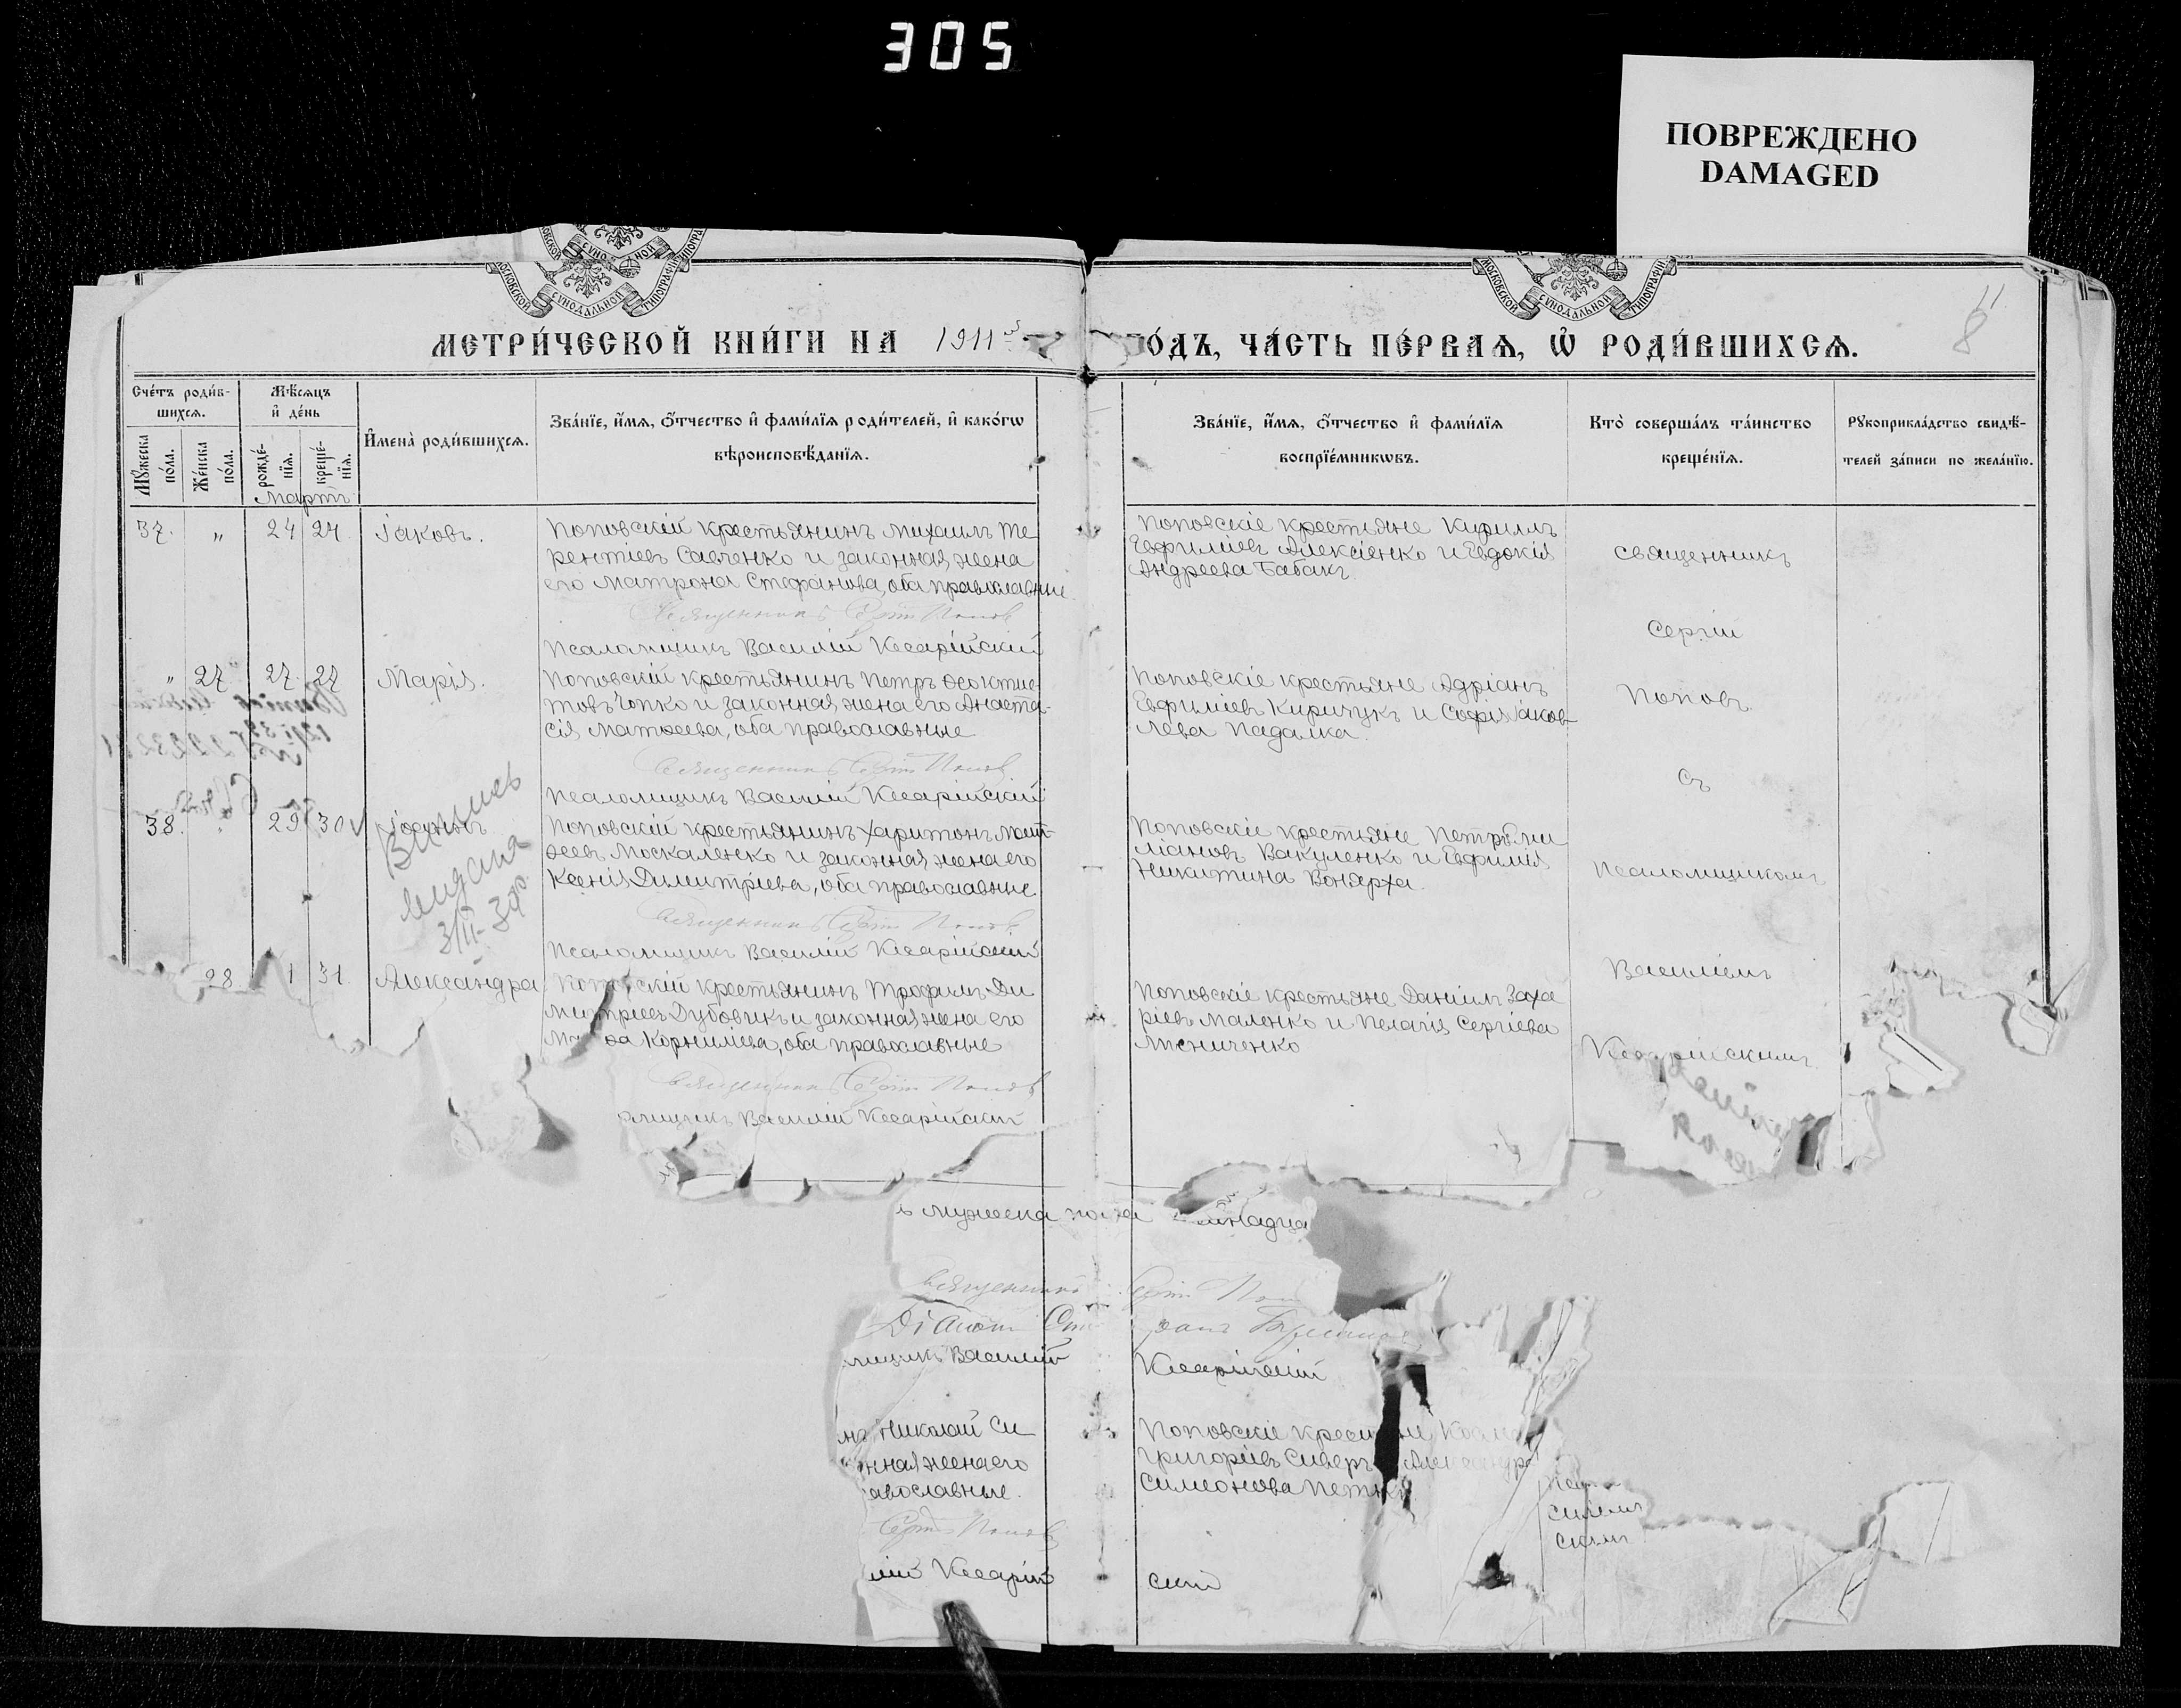 305
ПОВРЕЖДЕНО
DAMAGED
МОСКОВСКОЙ СУНОДАЛЬНОЙ ТИПОГРАФІИ
МОСКОВСКОЙ СУНОДАЛЬНОЙ ТИПОГРАФІИ
11
8
МЕТРИ́ЧЕСКОЙ КНИ́ГИ НА 1911
О́ДЪ, ЧА́СТЬ ПЕ́РВАѦ, Ѡ҆ РОДИ́ВШИХСѦ.
Сче́тъ роди́в-
шихсѧ.
Мꙋ́жеска по́ла.
Же́нска по́ла.
Мѣ́сѧцъ
и҆ де́нь
рожде́-
нїѧ.
креще́-
нїѧ.
И҆мена̀ роди́вшихсѧ.
Зва́нїе, и҆́мѧ, ѻ҆́тчество и҆ фами́лїѧ роди́телей, и҆ како́гѡ
вѣроисповѣ́данїѧ.
Зва́нїе, и҆́мѧ, ѻ҆́тчество и҆ фами́лїѧ
воспрїе́мникѡвъ.
Кто̀ соверша́лъ та́инство
креще́нїѧ.
Рꙋкоприкла́дство свидѣ́-
телей за́писи по жела́нїю.
Мартъ
37. „ 24 24. Іаковъ.
Поповскій крестьянинъ Михаилъ Те
рентіевъ Савченко и законная жена
его Матрона Стефанова, оба православные
Священникъ Сергій Поповъ
Псаломщикъ Василій Кесарійскій
Поповскіе крестьяне Кириллъ
Евфиміевъ Алексіенко и Евдокія
Андреева Бабакъ.
священникъ
Сергій
„ 27 27. 27 Марія.
Поповскій крестьянинъ Петръ Ѳеоктис
товъ Чопко и законная жена его Анаста-
сія Матѳеева, оба православные
Священникъ Сергій Поповъ
Псаломщикъ Василій Кесарійскій
Поповскіе крестьяне Адріанъ
Евфиміевъ Киричукъ и Софія Іаков
лева Падалка.
Поповъ
съ
38. 29 30 Іоаннъ
Выпись
видана
3/II-39р.
Поповскій крестьянинъ Харитонъ Мат-
ѳеевъ Москаленко и законная жена его
Ксенія Димитріева, оба православные
Священникъ Сергій Поповъ
Псаломщикъ Василій Кесарійскій
Поповскіе крестьяне Петръ Эми
ліановъ Вакуленко и Евфимія
Никитина Вонярха.
псаломщикомъ
Василіемъ
28 1 31. Александра
скій крестьянинъ Трофимъ Ди
митріевъ Дубовикъ и законная жена его
Корнилiева, оба православные
Священникъ Сергій Поповъ
омщикъ Василій Кесарійскій
Поповскіе крестьяне Даніилъ Заха
ріевъ Маленко и Пелагія Сергіева
Кесарійскимъ
ъ мужеска пола надца
Священникъ Сергій Поп
Діаконъ
мщикъ Василій Кесарійскій
нъ Николай Си
нная жена его
авославные.
Сергій Поповъ
лій Кесарій скій
Поповскіе кресть не
Григоріевъ Сиверъ Александра
Симеонова
силіемъ
скимъ